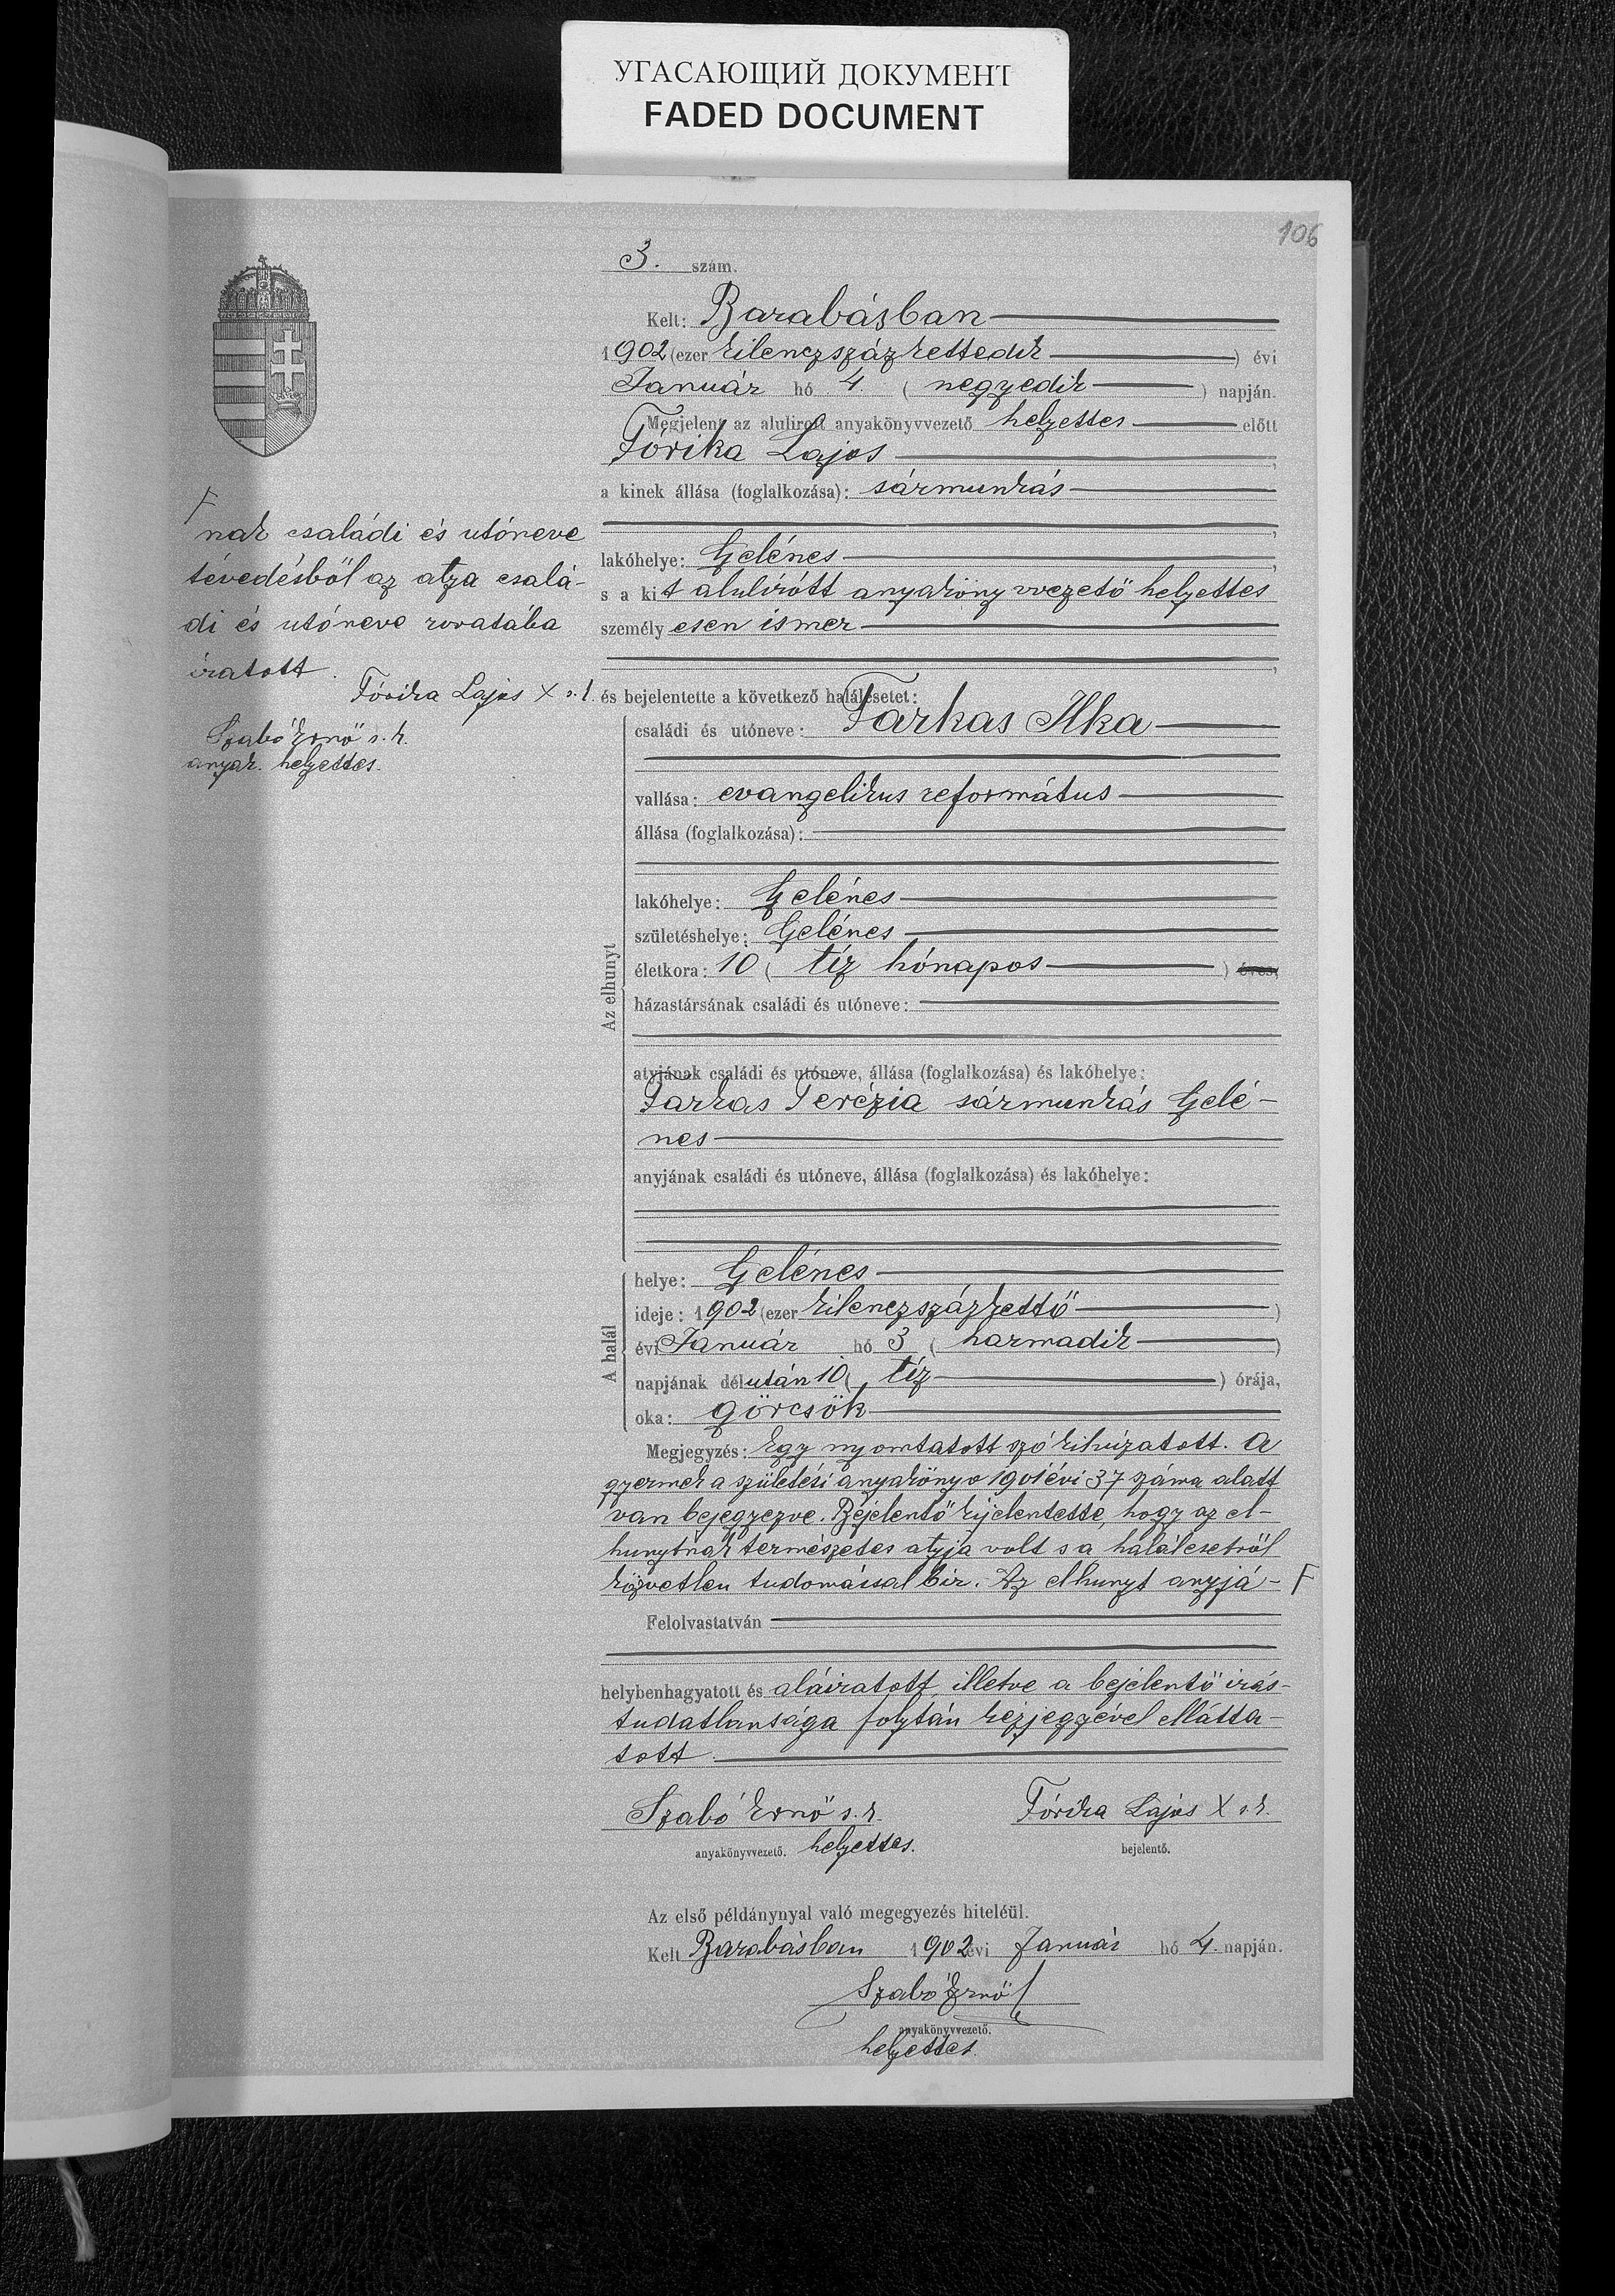 УГАСАЮЩИЙ ДОКУМЕНТ
FADED DOCUMENT
106
3. szám.
Kelt: Barabásban
1902 (ezer kilenczszázkettedik) évi
Január hó 4 (negyedik) napján.
Megjelent az alulirott anyakönyvvezető helyettes előtt
Fórika Lajos,
a kinek állása (foglalkozása): sármunkás
lakóhelye: Gelénes,
s a kit alulírótt anyakönyvvezető helyettes
személyesen ismer
és bejelentette a következő halálesetet:
Az elhunyt
családi és utóneve: Farkas Ilka
vallása: evangelikus református
állása (foglalkozása):
lakóhelye: Gelénes
születéshelye: Gelénes
életkora: 10 (tíz hónapos) éves,
házastársának családi és utóneve:
atyjának családi és utóneve, állása (foglalkozása) és lakóhelye:
Farkas Terézia sármunkás Gelé-
nes
anyjának családi és utóneve, állása (foglalkozása) és lakóhelye:
A halál
helye: Gelénes
ideje: 1902 (ezer kilenczszázkettő)
évi Január hó 3 (harmadik)
napjának délután 10 (tíz) órája,
oka: görcsök
Megjegyzés: Egy nyomtatott szó kihúzatott. A
gyermek a születési anyakönyv 1901 évi 37 száma alatt
van bejegyezve. Bejelentő kijelentette, hogy az el-
hunytnak természetes atyja volt s a halálesetről
közvetlen tudomással bir. Az elhunyt anyjá- F
F
nak családi és utóneve
tévedésből az atya csalá-
di és utóneve rovatába
iratott.
Fórika Lajos X s.k.
Szabó Ernő s.k.
anyak. helyettes.
Felolvastatván
helybenhagyatott és aláiratott, illetve a bejelentő irás-
tudatlansága folytán kézjegyével ellátta-
tott.
Szabó Ernő s.k. Fórika Lajos X s.k.
anyakönyvvezető. helyettes. bejelentő.
Az első példánynyal való megegyezés hiteléül.
Kelt Barabásban 1902 évi Január hó 4. napján.
Szabó Ernő
anyakönyvvezető.
helyettes